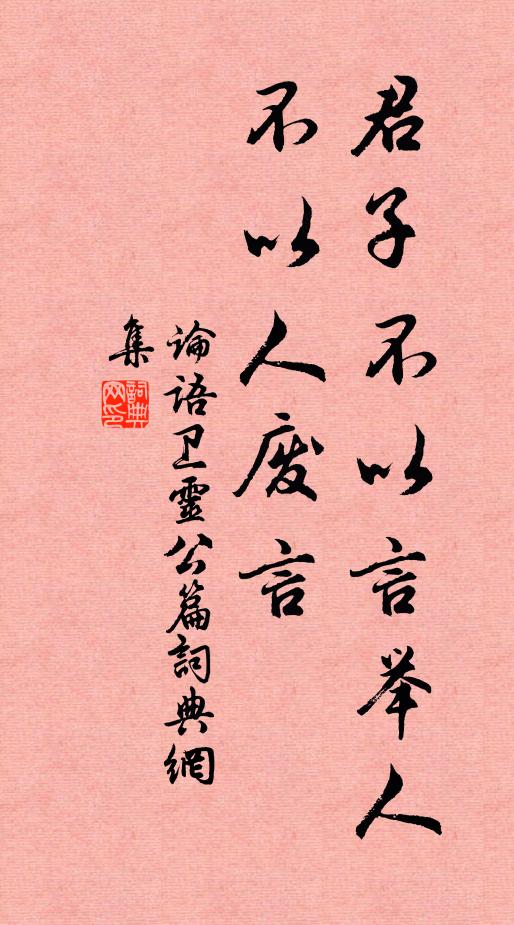 君子不以言举人
不以人废言
論語卫靈公篇詞典網
集
詞典网印